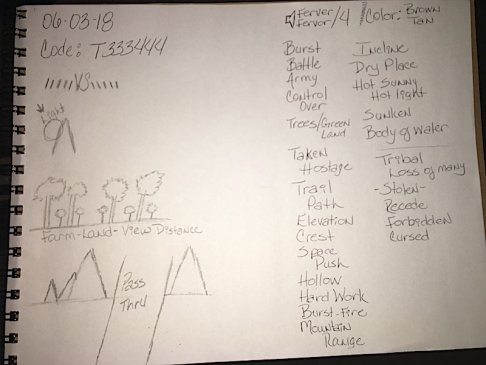 06-03-18
Code: T333444
VS
Light
Farm-Land-View Distance
Pass
Thru
Ferver/4
Fervor
Color: Brown
Tan
Burst
Battle
Army
Control
Over
Trees/Green
Land
Taken
Hostage
Trail
Path
Elevation
Crest
Space
Push
Hollow
Hard Work
Burst-Fire
Mountain
Range
Incline
Dry Place
Hot Sunny
Hot light
Sunken
Body of Water
Tribal
Loss of many
-Stolen-
Recede
Forbidden
Cursed